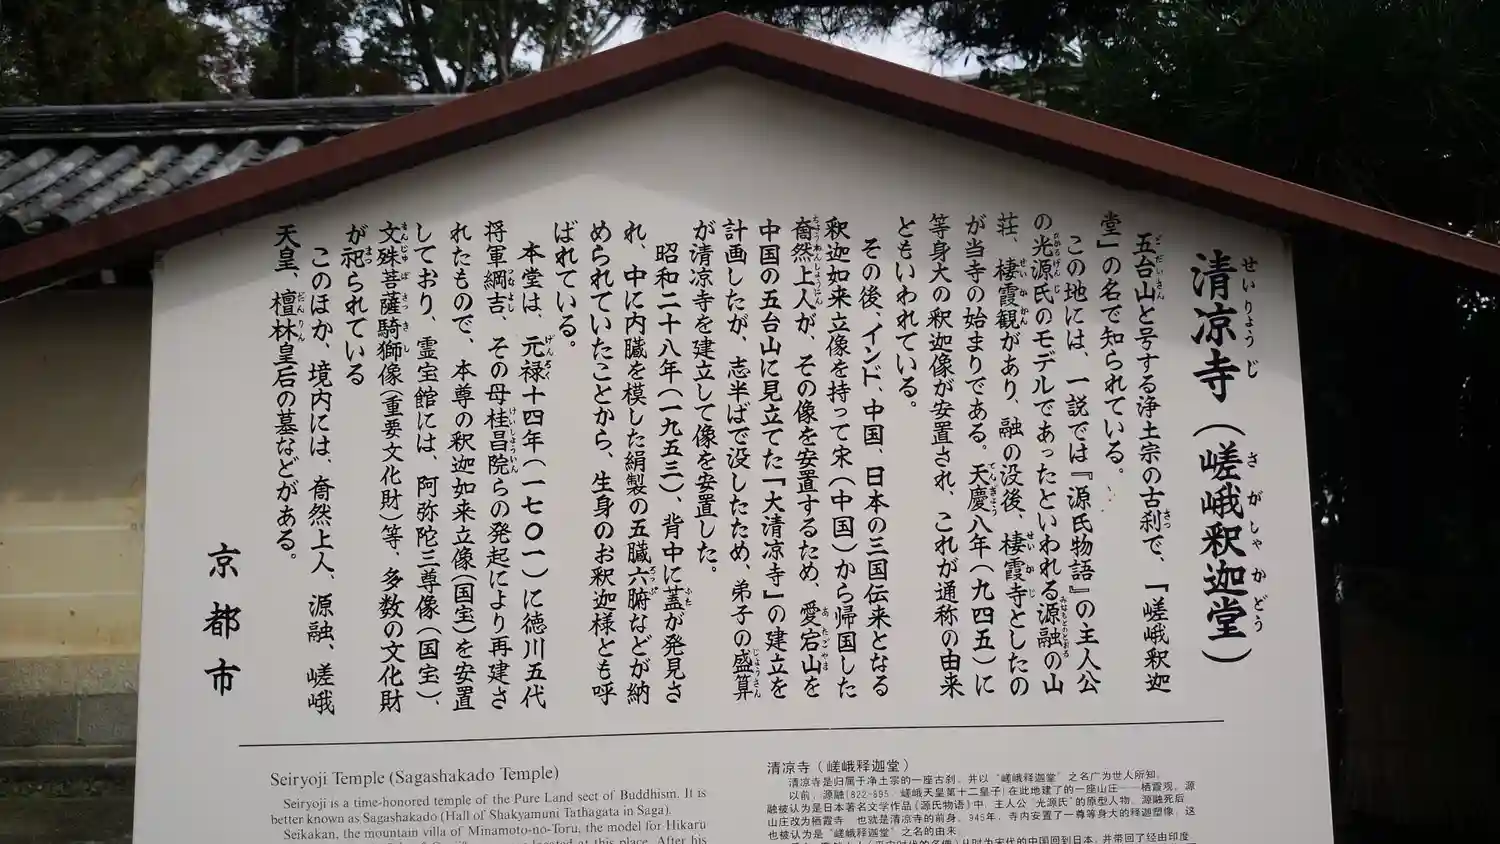 清凉寺（嵯峨釈迦堂）
五台山と号する浄土宗の古刹で、「嵯峨釈迦
堂」の名で知られている。
この地には、一説では『源氏物語』の主人公
の光源氏のモデルであったといわれる源融の山
荘、棲霞観があり、融の没後、棲霞寺としたの
が当寺の始まりである。天慶八年（九四五）に
等身大の釈迦像が安置され、これが通称の由来
ともいわれている。
その後、インド、中国、日本の三国伝来となる
釈迦如来立像を持って宋（中国）から帰国した
奝然上人が、その像を安置するため、愛宕山を
中国の五台山に見立てた「大清凉寺」の建立を
計画したが、志半ばで没したため、弟子の盛算
が清凉寺を建立して像を安置した。
昭和二十八年（一九五三）、背中に蓋が発見さ
れ、中に内臓を模した絹製の五臓六腑などが納
められていたことから、生身のお釈迦様とも呼
ばれている。
本堂は、元禄十四年（一七〇一）に徳川五代
将軍綱吉、その母桂昌院らの発起により再建さ
れたもので、本尊の釈迦如来立像（国宝）を安置
しており、霊宝館には、阿弥陀三尊像（国宝）、
文殊菩薩騎獅像（重要文化財）等、多数の文化財
が祀られている
このほか、境内には、奝然上人、源融、嵯峨
天皇、檀林皇后の墓などがある。
京都市
Seiryoji Temple (Sagashakado Temple)
Seiryoji is a time-honored temple of the Pure Land sect of Buddhism. It is
better known as Sagashakado (Hall of Shakyamuni Tathagata in Saga).
Seikakan, the mountain villa of Minamoto-no-Toru, the model for Hikaru
located at this place. After his
清凉寺（嵯峨释迦堂）
清凉寺是归属于净土宗的一座古刹，并以“嵯峨释迦堂”之名广为世人所知。
以前，源融(822-895，嵯峨天皇第十二皇子)在此地建了的一座山庄——栖霞观。源
融被认为是日本著名文学作品《源氏物语》中，主人公“光源氏”的原型人物。源融死后
山庄改为栖霞寺，也就是清凉寺的前身。945年，寺内安置了一尊等身大的释迦塑像，这
也被认为是“嵯峨释迦堂”之名的由来。
时为宋代的中国回到日本，并带回了经由印度